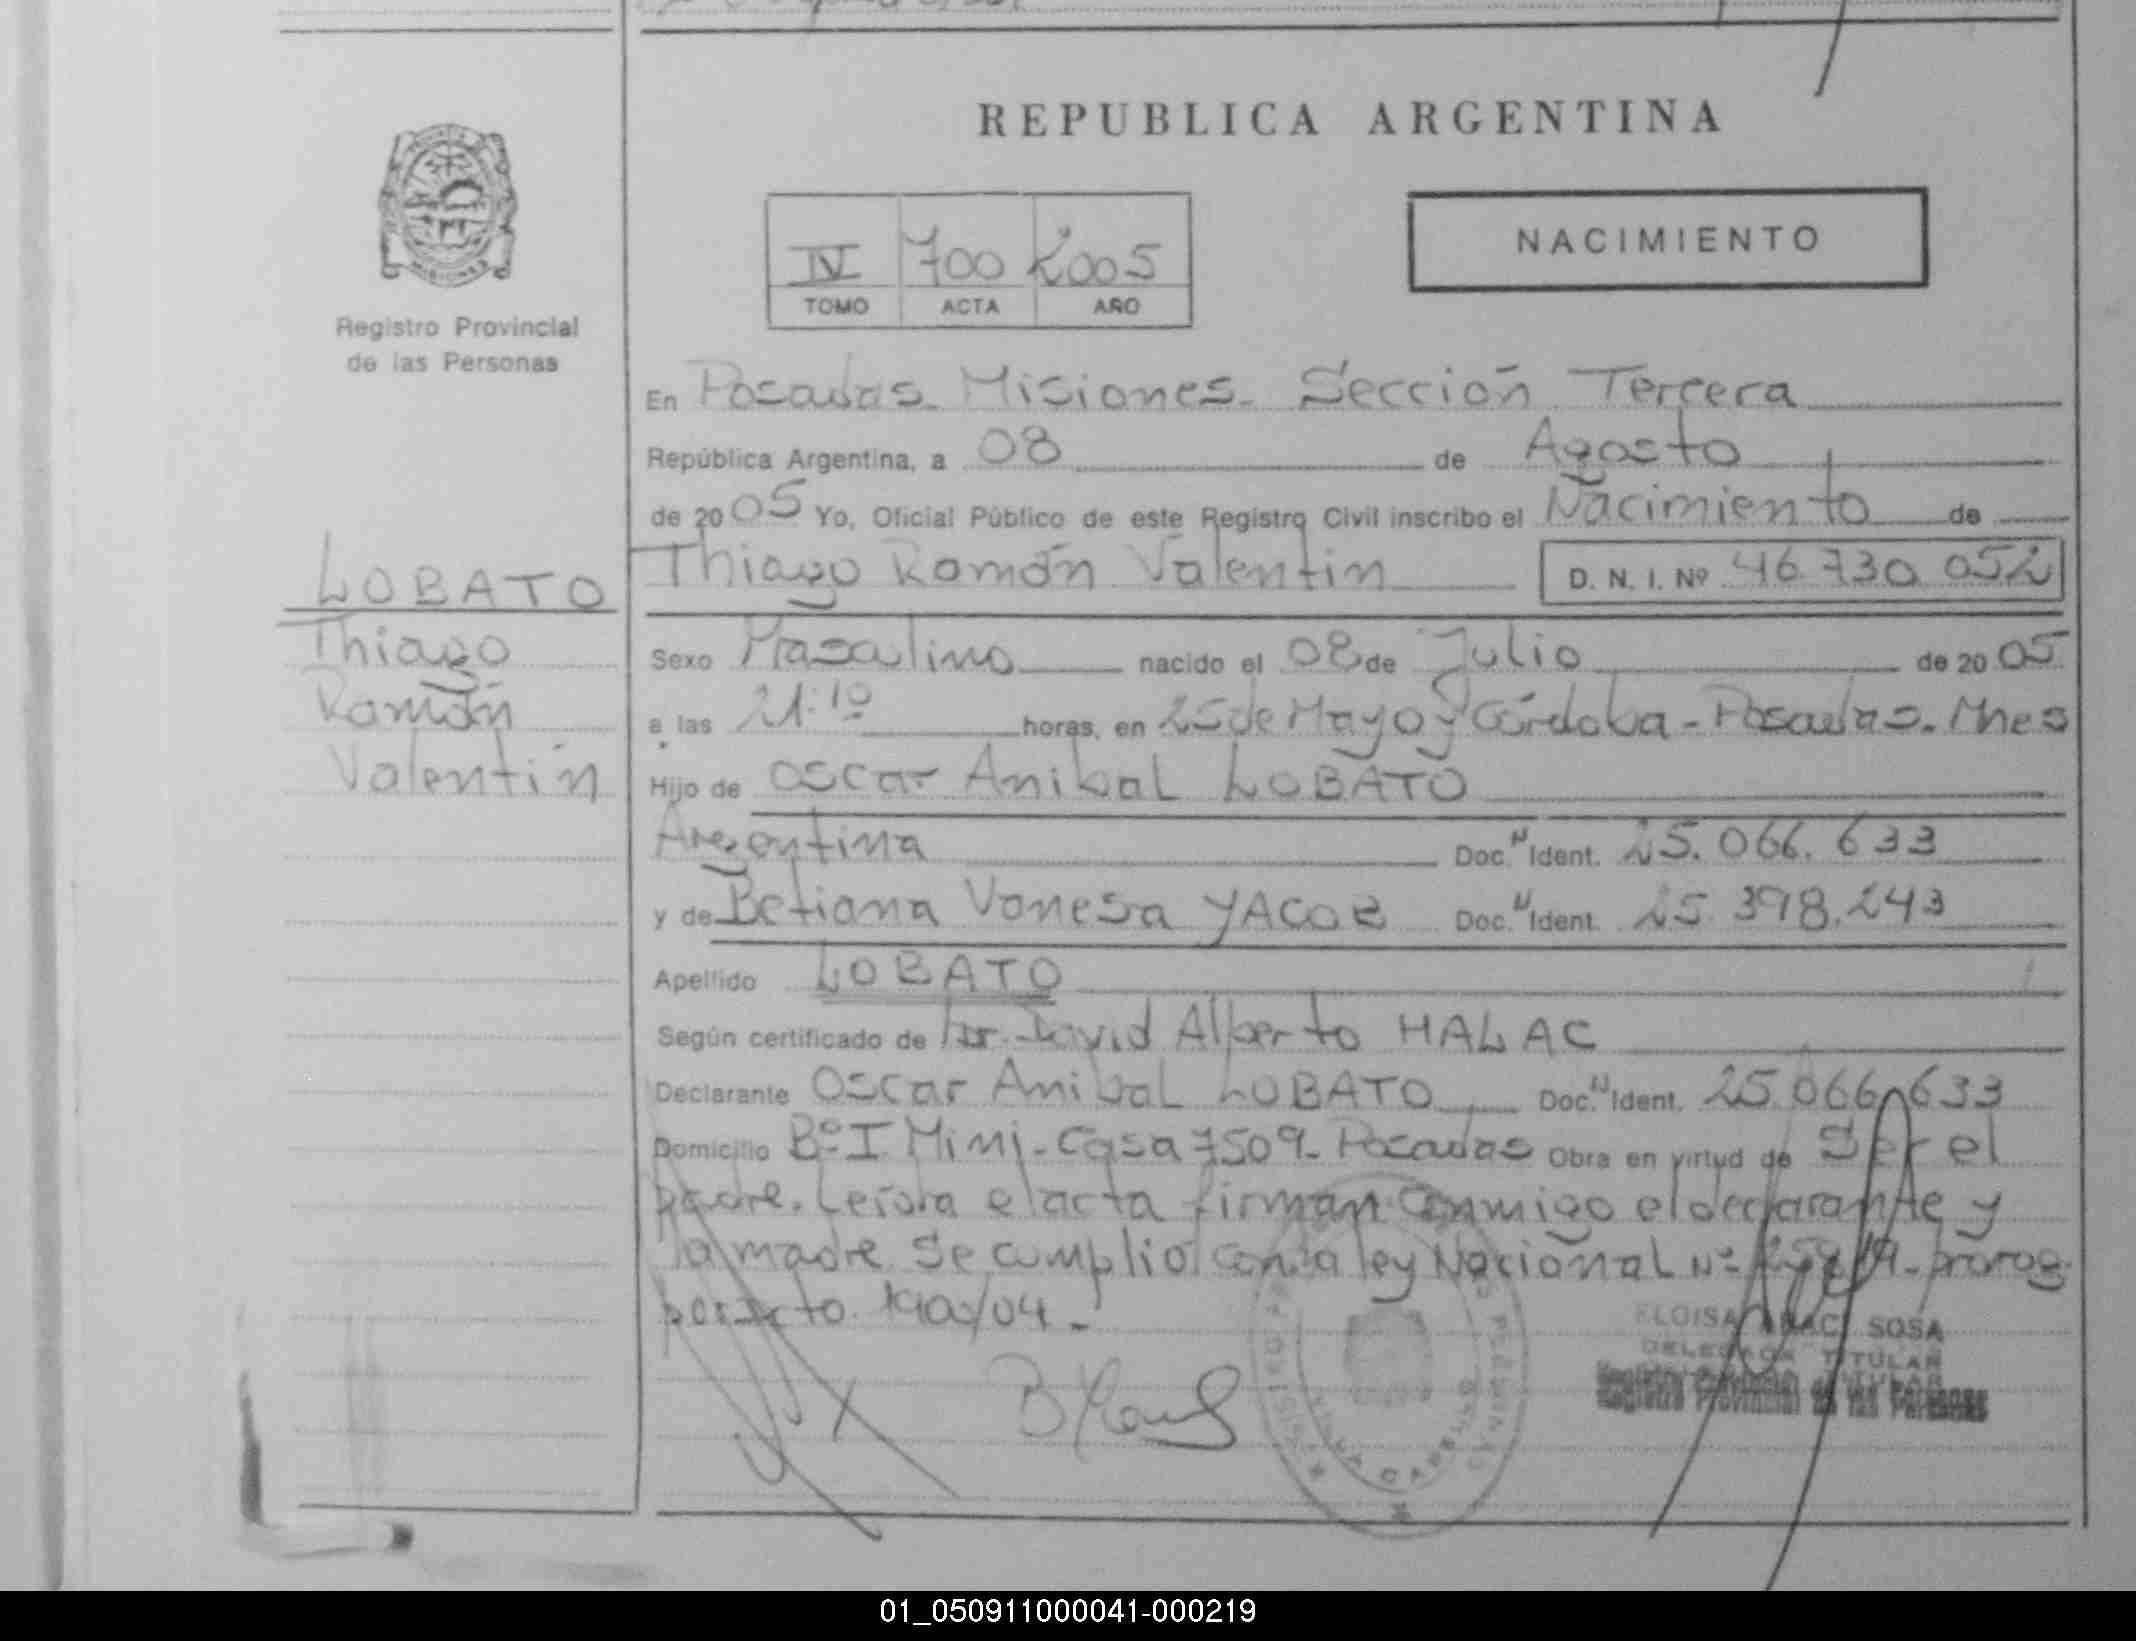 REPUBLICA ARGENTINA
NACIMIENTO
IV 700 2005
TOMO ACTA AÑO
Registro Provincial
de las Personas
MISIONES
En Posadas. Misiones. Sección Tercera
República Argentina, a 08 de Agosto
de 2005 Yo, Oficial Público de este Registro Civil inscribo el Nacimiento de
Thiago Ramón Valentín D. N. I. Nº 46.730.052
LOBATO
Thiago
Ramón
Valentín
Sexo Masculino nacido el 08 de Julio de 2005
a las 21:10 horas, en 25 de Mayo y Córdoba - Posadas. Mnes
Hijo de Oscar Anibal LOBATO
Argentina Doc. N Ident. 25.066.633
y de Betiana Vanesa YACOB Doc. N Ident. 25.398.243
Apellido LOBATO
Según certificado de Dr. David Alberto HALAC
Declarante Oscar Anibal LOBATO Doc. N Ident. 25.066.633
Domicilio Bº I Mini - Casa 7509 - Posadas Obra en virtud de Ser el
padre. Leída el acta firman conmigo el declarante y
la madre. Se cumplió con la ley Nacional Nº prorog
por
ELOISA SOSA
DELEGADA TITULAR
Registro Provincial de las Personas
01_050911000041-000219